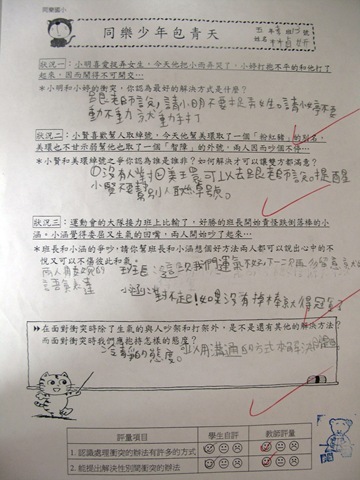 同樂國小
同樂少年包青天
狀況一：小明喜愛捉弄女生，今天他把小雨弄哭了，小婷打抱不平的和他打了
起來，因而鬧得不可開交…
※小明和小婷的衝突，你認為最好的解決方式是什麼？
跟老師說,請小明不要捉弄女生。請小婷不要
動不動就動手打
狀況二：小賢喜歡幫人取綽號，今天他幫美環取了一個「粉紅豬」的別名，
美環也不甘示弱幫他取了一個「智障」的外號，兩人因而吵個不停…
※小賢和美環綽號之爭你認為誰是誰非？如何解決才可以讓雙方都滿意？
①沒有人對②美環可以去跟老師說。提醒
小賢不要幫別人取綽號。
狀況三：運動會的大隊接力班上比輸了，好勝的班長開始責怪跌倒落棒的小
涵。小涵覺得委屈又生氣的回嘴，兩人開始吵了起來…
※班長和小涵的爭吵，請你幫班長和小涵想個好方法兩人都可以說出心中的不
悅又可以不傷彼此和氣。
班長:這次我們運氣不好,下一次
小涵:對不起!如果沒有掉棒就得冠軍了
▶▶在面對衝突時除了生氣的與人吵架和打架外，是不是還有其他的解決方法？
而面對衝突時我們應抱持怎樣的態度？
冷靜的態度。可以用溝通的方式來解決
評量項目 學生自評 教師評量
1. 認識處理衝突的辦法有許多的方式
2. 能提出解決性別間衝突的辦法